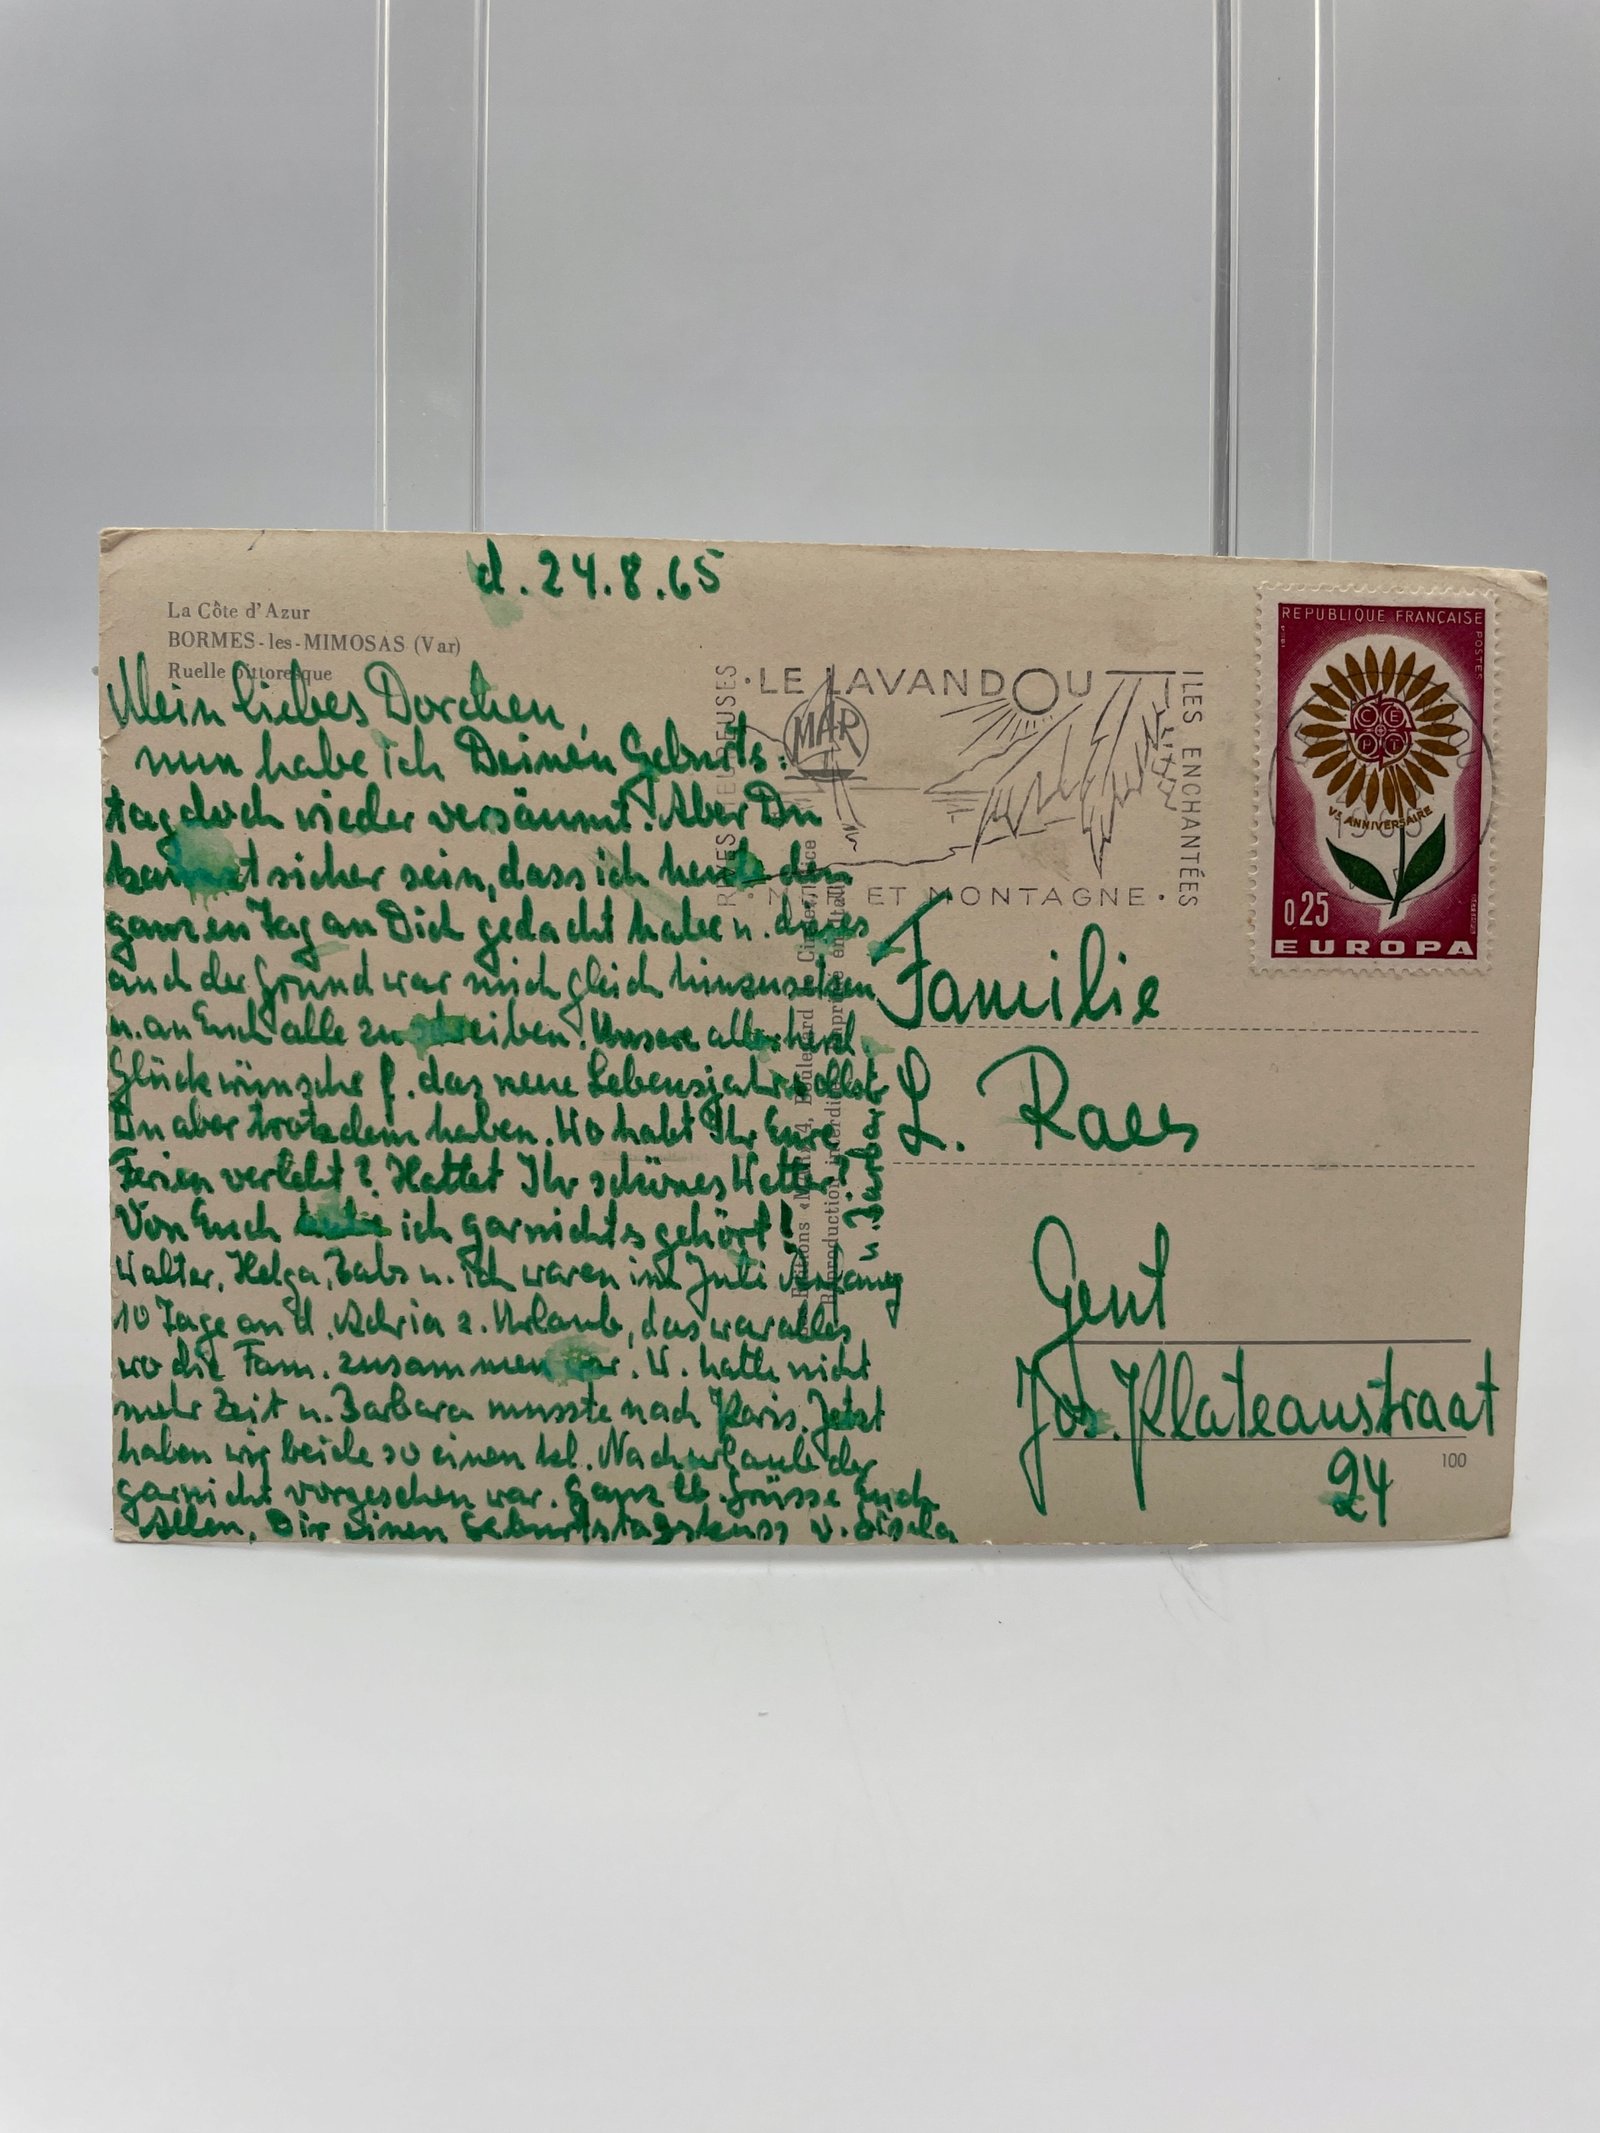 d. 24.8.65
La Côte d'Azur
BORMES-les-MIMOSAS (Var)
Ruelle pittoresque
Mein liebes Dorchen,
nun habe ich Deinen Geburts-
tag doch wieder versäumt! Aber Du
kannst sicher sein, dass ich heute den
ganzen Tag an Dich gedacht habe u. dieses
auch der Grund war mich gleich hinzusetzen
u. an Euch alle zu schreiben. Unsere aller herzl.
Glückwünsche f. das neue Lebensjahr sollst
Du aber trotzdem haben. Wo habt Ihr Eure
Ferien verlebt? Hattet Ihr schönes Wetter?
Von Euch habe ich garnichts gehört!
Walter, Helga, Babs u. ich waren im Juli Anfang
10 Tage an d. Adria z. Urlaub, das war alles
wo die Fam. zusammen war. W. hatte nicht
mehr Zeit u. Barbara musste nach Paris. Jetzt
haben wir beide so einen kl. Nachurlaub der
garnicht vorgesehen war. Ganz lb. Grüsse Euch
Allen, Dir einen Geburtstagskuss v. Gisela
u. Barbara
RIVES
LE LAVANDOU
MAR
ILES ENCHANTÉES
ET MONTAGNE
REPUBLIQUE FRANÇAISE
POSTES
CEPT
Ve ANNIVERSAIRE
0,25
EUROPA
Familie
L. Raes
Gent
Jos. Plateaustraat
24
100